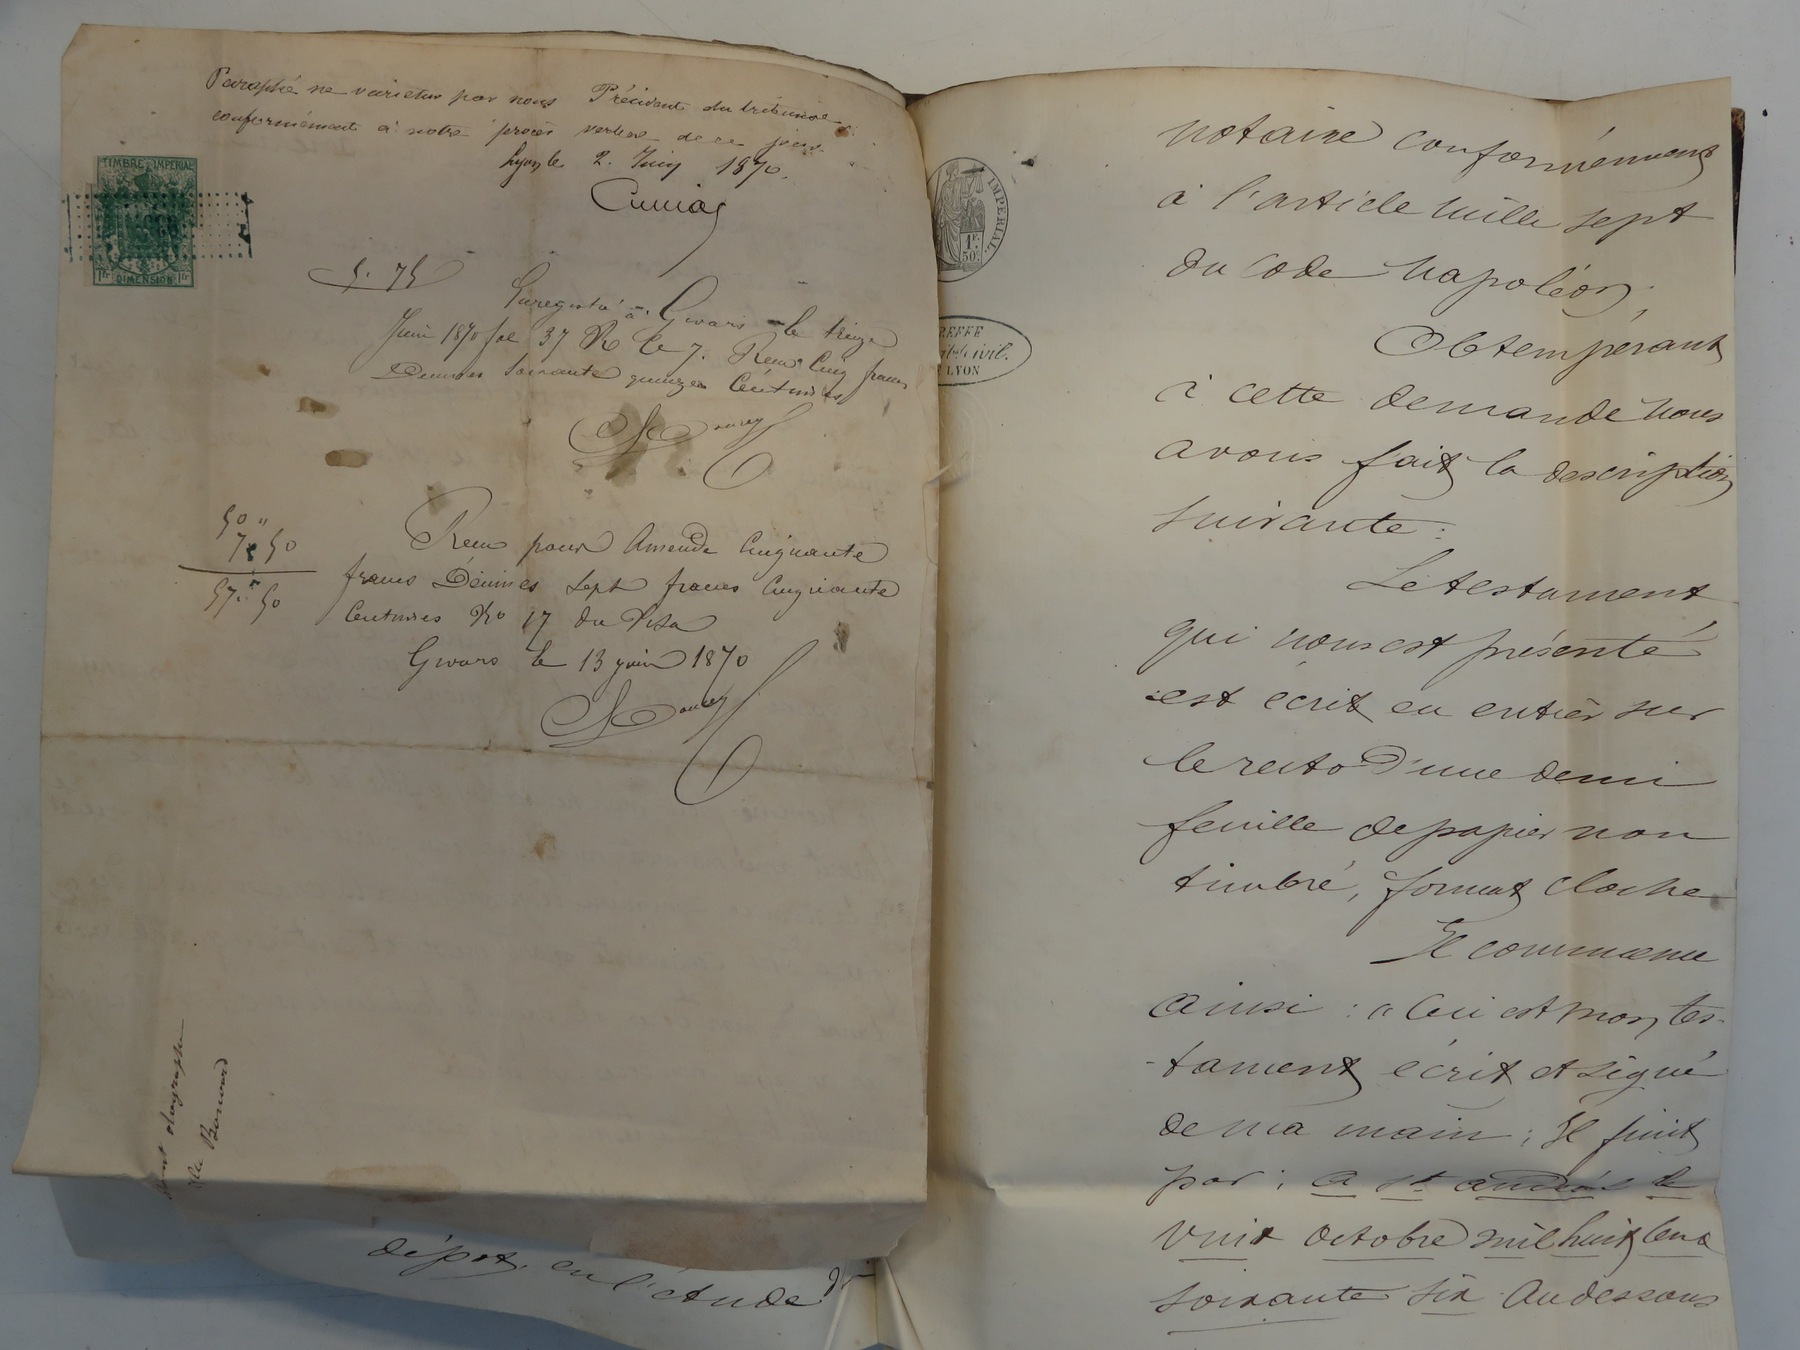 Paraphé ne varietur par nous Président du tribunal
conformément à notre procès verbal de ce jour
Lyon le 2 Juin 1870.
TIMBRE IMPERIAL
1fr DIMENSION 1fr
5. 75
Enregistré à Givors le treize
Juin 1870 fol 37 Ro Ce 7. Recu Cinq francs
Decimes Soixante quinze Centimes
50 "
7 50
57. 50
Recu pour Amende Cinquante
francs Décimes Sept francs Cinquante
Centimes No 17 du Visa
Givors le 13 juin 1870
olographe
Bonnard
dépot, en l'étude de
IMPERIAL.
1F.
50c.
GREFFE
Civil.
LYON
notaire conformément
à l'article mille sept
du Code Napoléon,
Obtempérant
à cette demande nous
avons fait la description
suivante :
Le testament
qui nous est présenté
est écrit en entier sur
le recto d'une demi
feuille de papier non
timbré, format cloche
Il commence
ainsi : " Ceci est mon tes-
-tament écrit et signé
de ma main ; Il finit
par : a st andéol le
vint octobre mil huit cent
soixante six Au dessous